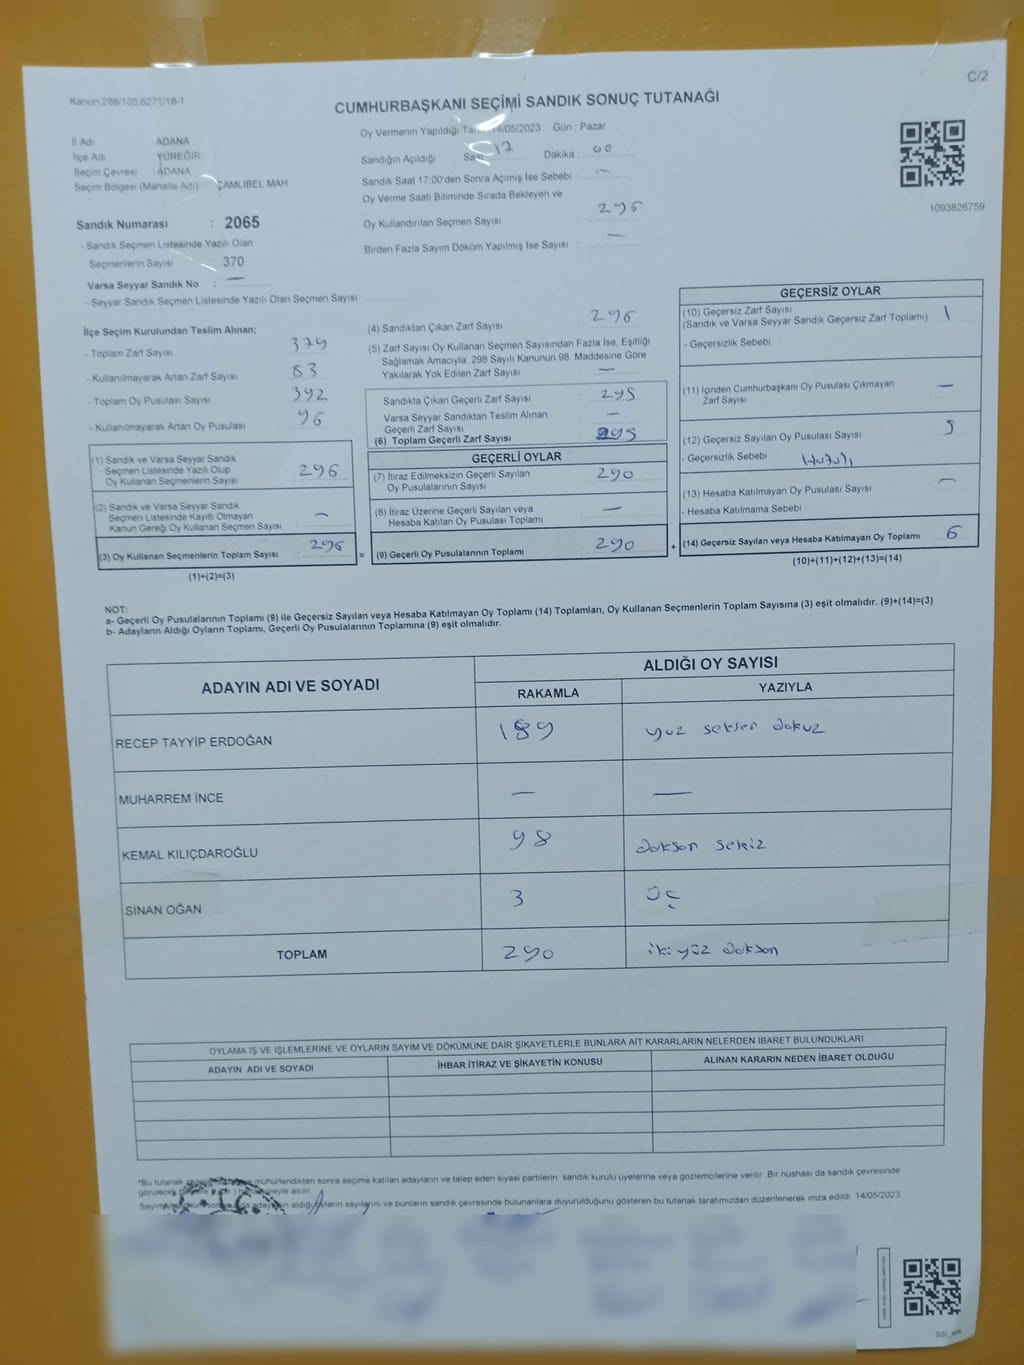 C/2
Kanun:298/105,6271/18-1
CUMHURBAŞKANI SEÇİMİ SANDIK SONUÇ TUTANAĞI
İl Adı ADANA
İlçe Adı YÜREĞİR
Seçim Çevresi : ADANA
Seçim Bölgesi (Mahalle Adı) ÇAMLIBEL MAH.
Sandık Numarası : 2065
- Sandık Seçmen Listesinde Yazılı Olan
Seçmenlerin Sayısı : 370
Varsa Seyyar Sandık No : —
- Seyyar Sandık Seçmen Listesinde Yazılı Olan Seçmen Sayısı
Oy Vermenin Yapıldığı 14/05/2023 Gün : Pazar
Sandığın Açıldığı Saat 17 Dakika : 00
Sandık Saat 17:00'den Sonra Açımış İse Sebebi —
Oy Verme Saati Bitiminde Sırada Bekleyen ve
Oy Kullandırılan Seçmen Sayısı 296
Birden Fazla Sayım Döküm Yapılmış İse Sayısı —
1093826759
İlçe Seçim Kurulundan Teslim Alınan;
- Toplam Zarf Sayısı : 379
- Kullanılmayarak Artan Zarf Sayısı : 83
- Toplam Oy Pusulası Sayısı : 392
- Kullanılmayarak Artan Oy Pusulası : 96
(1) Sandık ve Varsa Seyyar Sandık
Seçmen Listesinde Yazılı Olup
Oy Kullanan Seçmenlerin Sayısı 296
(2) Sandık ve Varsa Seyyar Sandık
Seçmen Listesinde Kayıtlı Olmayan
Kanun Gereği Oy Kullanan Seçmen Sayısı —
(3) Oy Kullanan Seçmenlerin Toplam Sayısı 296
(1)+(2)=(3)
(4) Sandıktan Çıkan Zarf Sayısı 296
(5) Zarf Sayısı Oy Kullanan Seçmen Sayısından Fazla İse, Eşitliği
Sağlamak Amacıyla, 298 Sayılı Kanunun 98. Maddesine Göre
Yakılarak Yok Edilen Zarf Sayısı —
Sandıkta Çıkan Geçerli Zarf Sayısı 295
Varsa Seyyar Sandıktan Teslim Alınan
Geçerli Zarf Sayısı —
(6) Toplam Geçerli Zarf Sayısı 295
GEÇERLİ OYLAR
(7) İtiraz Edilmeksizin Geçerli Sayılan
Oy Pusulalarının Sayısı 290
(8) İtiraz Üzerine Geçerli Sayılan veya
Hesaba Katılan Oy Pusulası Toplamı —
= (9) Geçerli Oy Pusulalarının Toplamı 290
GEÇERSİZ OYLAR
(10) Geçersiz Zarf Sayısı
(Sandık ve Varsa Seyyar Sandık Geçersiz Zarf Toplamı) 1
- Geçersizlik Sebebi :
(11) İçinden Cumhurbaşkanı Oy Pusulası Çıkmayan
Zarf Sayısı —
(12) Geçersiz Sayılan Oy Pusulası Sayısı 5
- Geçersizlik Sebebi
(13) Hesaba Katılmayan Oy Pusulası Sayısı —
- Hesaba Katılmama Sebebi
+ (14) Geçersiz Sayılan veya Hesaba Katılmayan Oy Toplamı 6
(10)+(11)+(12)+(13)=(14)
NOT:
a- Geçerli Oy Pusulalarının Toplamı (9) ile Geçersiz Sayılan veya Hesaba Katılmayan Oy Toplamı (14) Toplamları, Oy Kullanan Seçmenlerin Toplam Sayısına (3) eşit olmalıdır. (9)+(14)=(3)
b- Adayların Aldığı Oyların Toplamı, Geçerli Oy Pusulalarının Toplamına (9) eşit olmalıdır.
ADAYIN ADI VE SOYADI ALDIĞI OY SAYISI
RAKAMLA YAZIYLA
RECEP TAYYİP ERDOĞAN 189 yüz seksen dokuz
MUHARREM İNCE — —
KEMAL KILIÇDAROĞLU 98 doksan sekiz
SİNAN OĞAN 3 üç
TOPLAM 290 iki yüz doksan
OYLAMA İŞ VE İŞLEMLERİNE VE OYLARIN SAYIM VE DÖKÜMÜNE DAİR ŞİKAYETLERLE BUNLARA AİT KARARLARIN NELERDEN İBARET BULUNDUKLARI
ADAYIN ADI VE SOYADI İHBAR İTİRAZ VE ŞİKAYETİN KONUSU ALINAN KARARIN NEDEN İBARET OLDUĞU
*Bu tutanak mühürlendikten sonra seçime katılan adayların ve talep eden siyasi partilerin sandık kurulu üyelerine veya gözlemcilerine verilir. Bir nüshası da sandık çevresinde
görülecek süreyle asılır.
aldığı oyların sayılarını ve bunların sandık çevresinde bulunanlara duyurulduğunu gösteren bu tutanak tarafımızdan düzenlenerek imza edildi. 14/05/2023